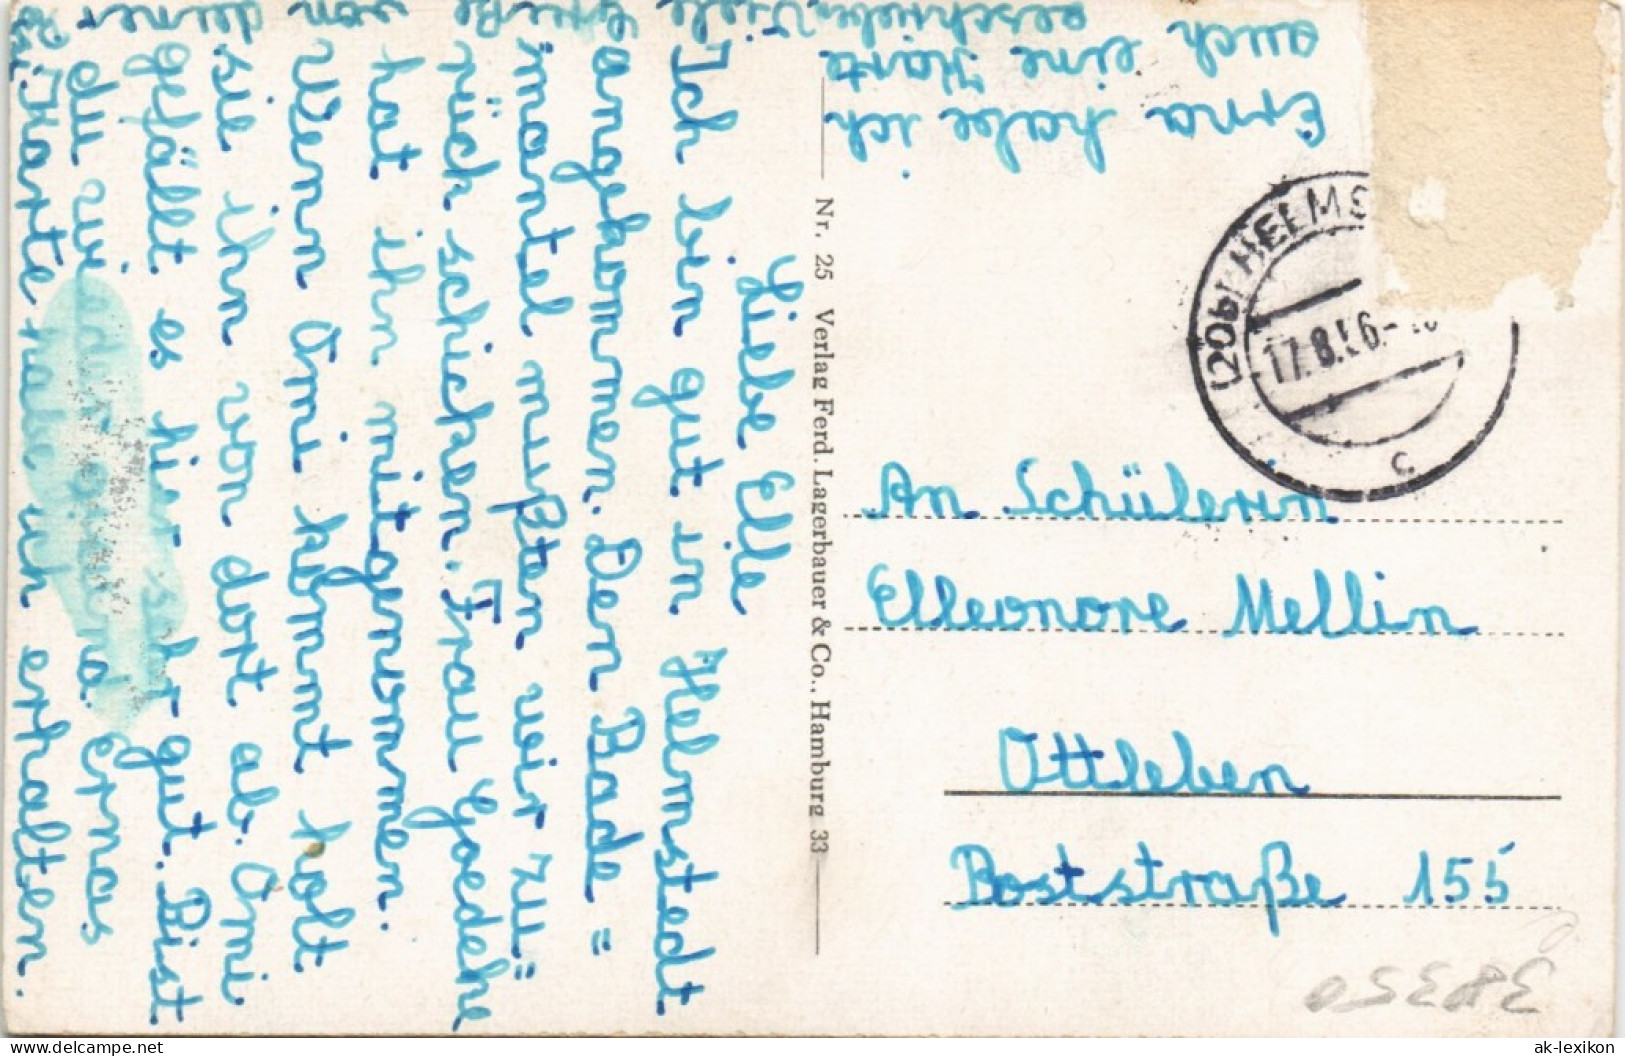 Liebe Elle
Ich bin gut in Helmstedt
angekommen. Den Bade=
mantel mußten wir zu=
rück schicken. Frau Goedeke
hat ihn mitgenommen.
Wenn Omi kommt holt
sie ihn von dort ab. Omi
gefällt es hier sehr gut. Bist
du wieder gesund. Ernas
Karte habe ich erhalten.
Erna habe ich
auch eine Karte
geschrieben. Viele
Grüße von deiner
Nr. 25 Verlag Ferd. Lagerbauer & Co., Hamburg 33
(20b) HELMS
17.8.56.-
c
An Schülerin
Elleonore Mellin
Ottleben
Poststraße 155
38350
ak-lexikon
delcampe.net